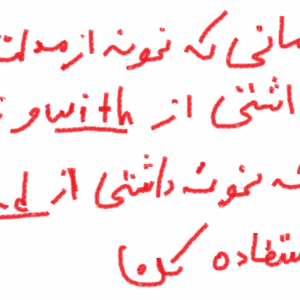 مانی که نمونه از مدلت
داشتی از with و
ه نمونه داشتی از d
ستفاده کن